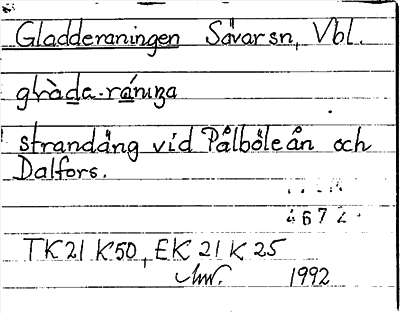 Gladderaningen Sävar sn, Vbl.
strandäng vid Pålböleån och
Dalfors.
4672
TK 21 K 50, EK 21 K 25
1992